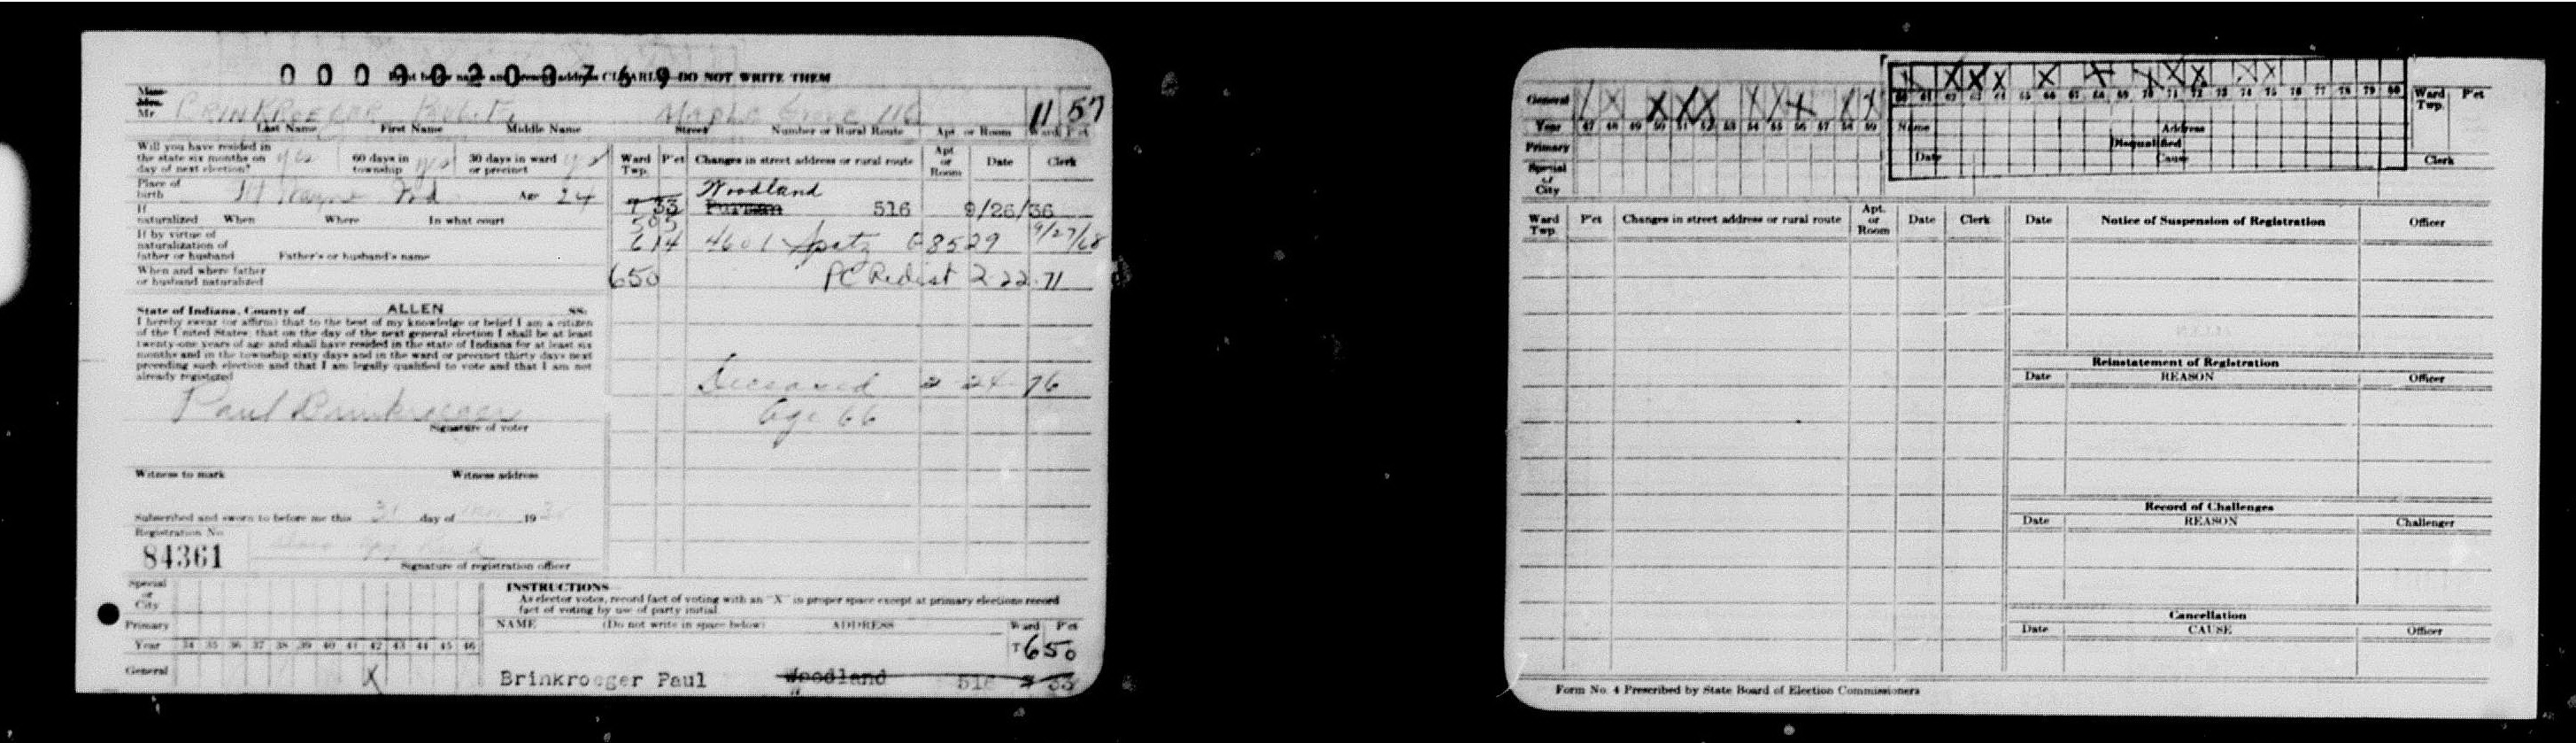 0 0 0 0 0 2 0 0 7 6 9
Print below name and present address CLEARLY DO NOT WRITE THEM
Miss
Mrs.
Mr BRINKROEGER Paul Maple Grove 116 11 57
Last Name First Name Middle Name Street Number or Rural Route Apt or Room Ward P'ct
Will you have resided in
the state six months on yes 60 days in yes 30 days in ward yes
day of next election? township or precinct
Place of
birth Ft Wayne Ind Age 24
If
naturalized When Where In what court
If by virtue of
naturalization of
father or husband Father's or husband's name
When and where father
or husband naturalized
State of Indiana, County of ALLEN ss:
I hereby swear (or affirm) that to the best of my knowledge or belief I am a citizen
of the United States, that on the day of the next general election I shall be at least
twenty-one years of age and shall have resided in the state of Indiana for at least six
months and in the township sixty days and in the ward or precinct thirty days next
preceding such election and that I am legally qualified to vote and that I am not
already registered
Paul Brinkroeger
Signature of voter
Witness to mark Witness address
Subscribed and sworn to before me this 31 day of 19
Registration No
84361
Signature of registration officer
Ward Twp. P'ct Changes in street address or rural route Apt or Room Date Clerk
Woodland
7 33 Furman 516 9/26/36
505
614 4601 Spatz 68529 9/27/68
650 PC Redist 2-22-71
Deceased 2 24 76
Age 66
Special
or
City
Primary
Year 34 35 36 37 38 39 40 41 42 43 44 45 46
General X
INSTRUCTIONS
As elector votes, record fact of voting with an "X" in proper space except at primary elections record
fact of voting by use of party initial
NAME (Do not write in space below) ADDRESS Ward P'ct
T 650
Brinkroeger Paul Woodland 516 7 33
General / X X X X X X X X X
Year 47 48 49 50 51 52 53 54 55 56 57 58 59
Primary
Special
or
City
X X X X X X X X X X X
60 61 62 63 64 65 66 67 68 69 70 71 72 73 74 75 76 77 78 79 80
Name Address
Disqualified
Date Cause
Ward
Twp. P'ct
Clerk
Ward Twp. P'ct Changes in street address or rural route Apt. or Room Date Clerk
Date Notice of Suspension of Registration Officer
Reinstatement of Registration
Date REASON Officer
Record of Challenges
Date REASON Challenger
Cancellation
Date CAUSE Officer
Form No. 4 Prescribed by State Board of Election Commissioners